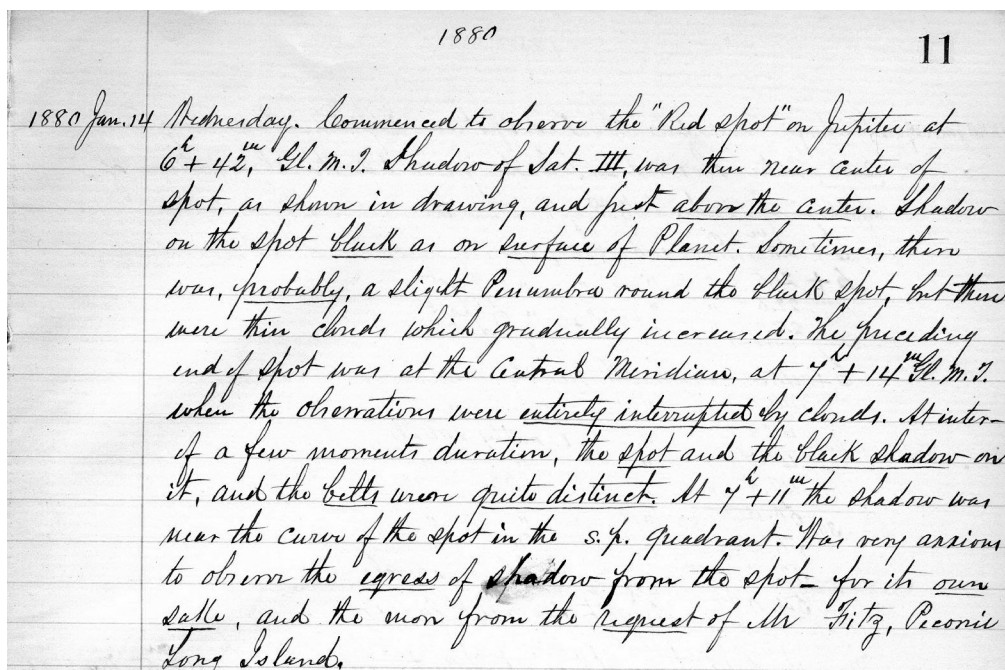 1880
11
1880 Jan. 14 Wednesday. Commenced to observe the "Red spot" on Jupiter at
6h + 42m, Gl. M. T. Shadow of Sat. III, was then near center of
spot, as shown in drawing, and just above the center. Shadow
on the spot black as on surface of Planet. Sometimes, there
was, probably, a slight Penumbra round the black spot, but there
were thin clouds which gradually increased. The preceding
end of spot was at the Central Meridian, at 7h + 14m Gl. M. T.
when the observations were entirely interrupted by clouds. At inter-
of a few moments duration, the spot and the black shadow on
it, and the belts were quite distinct. At 7h + 11m the shadow was
near the curve of the spot in the s.p. quadrant. Was very anxious
to observe the egress of shadow from the spot - for its own
sake, and the more from the request of Mr Fitz, Peconic
Long Island.